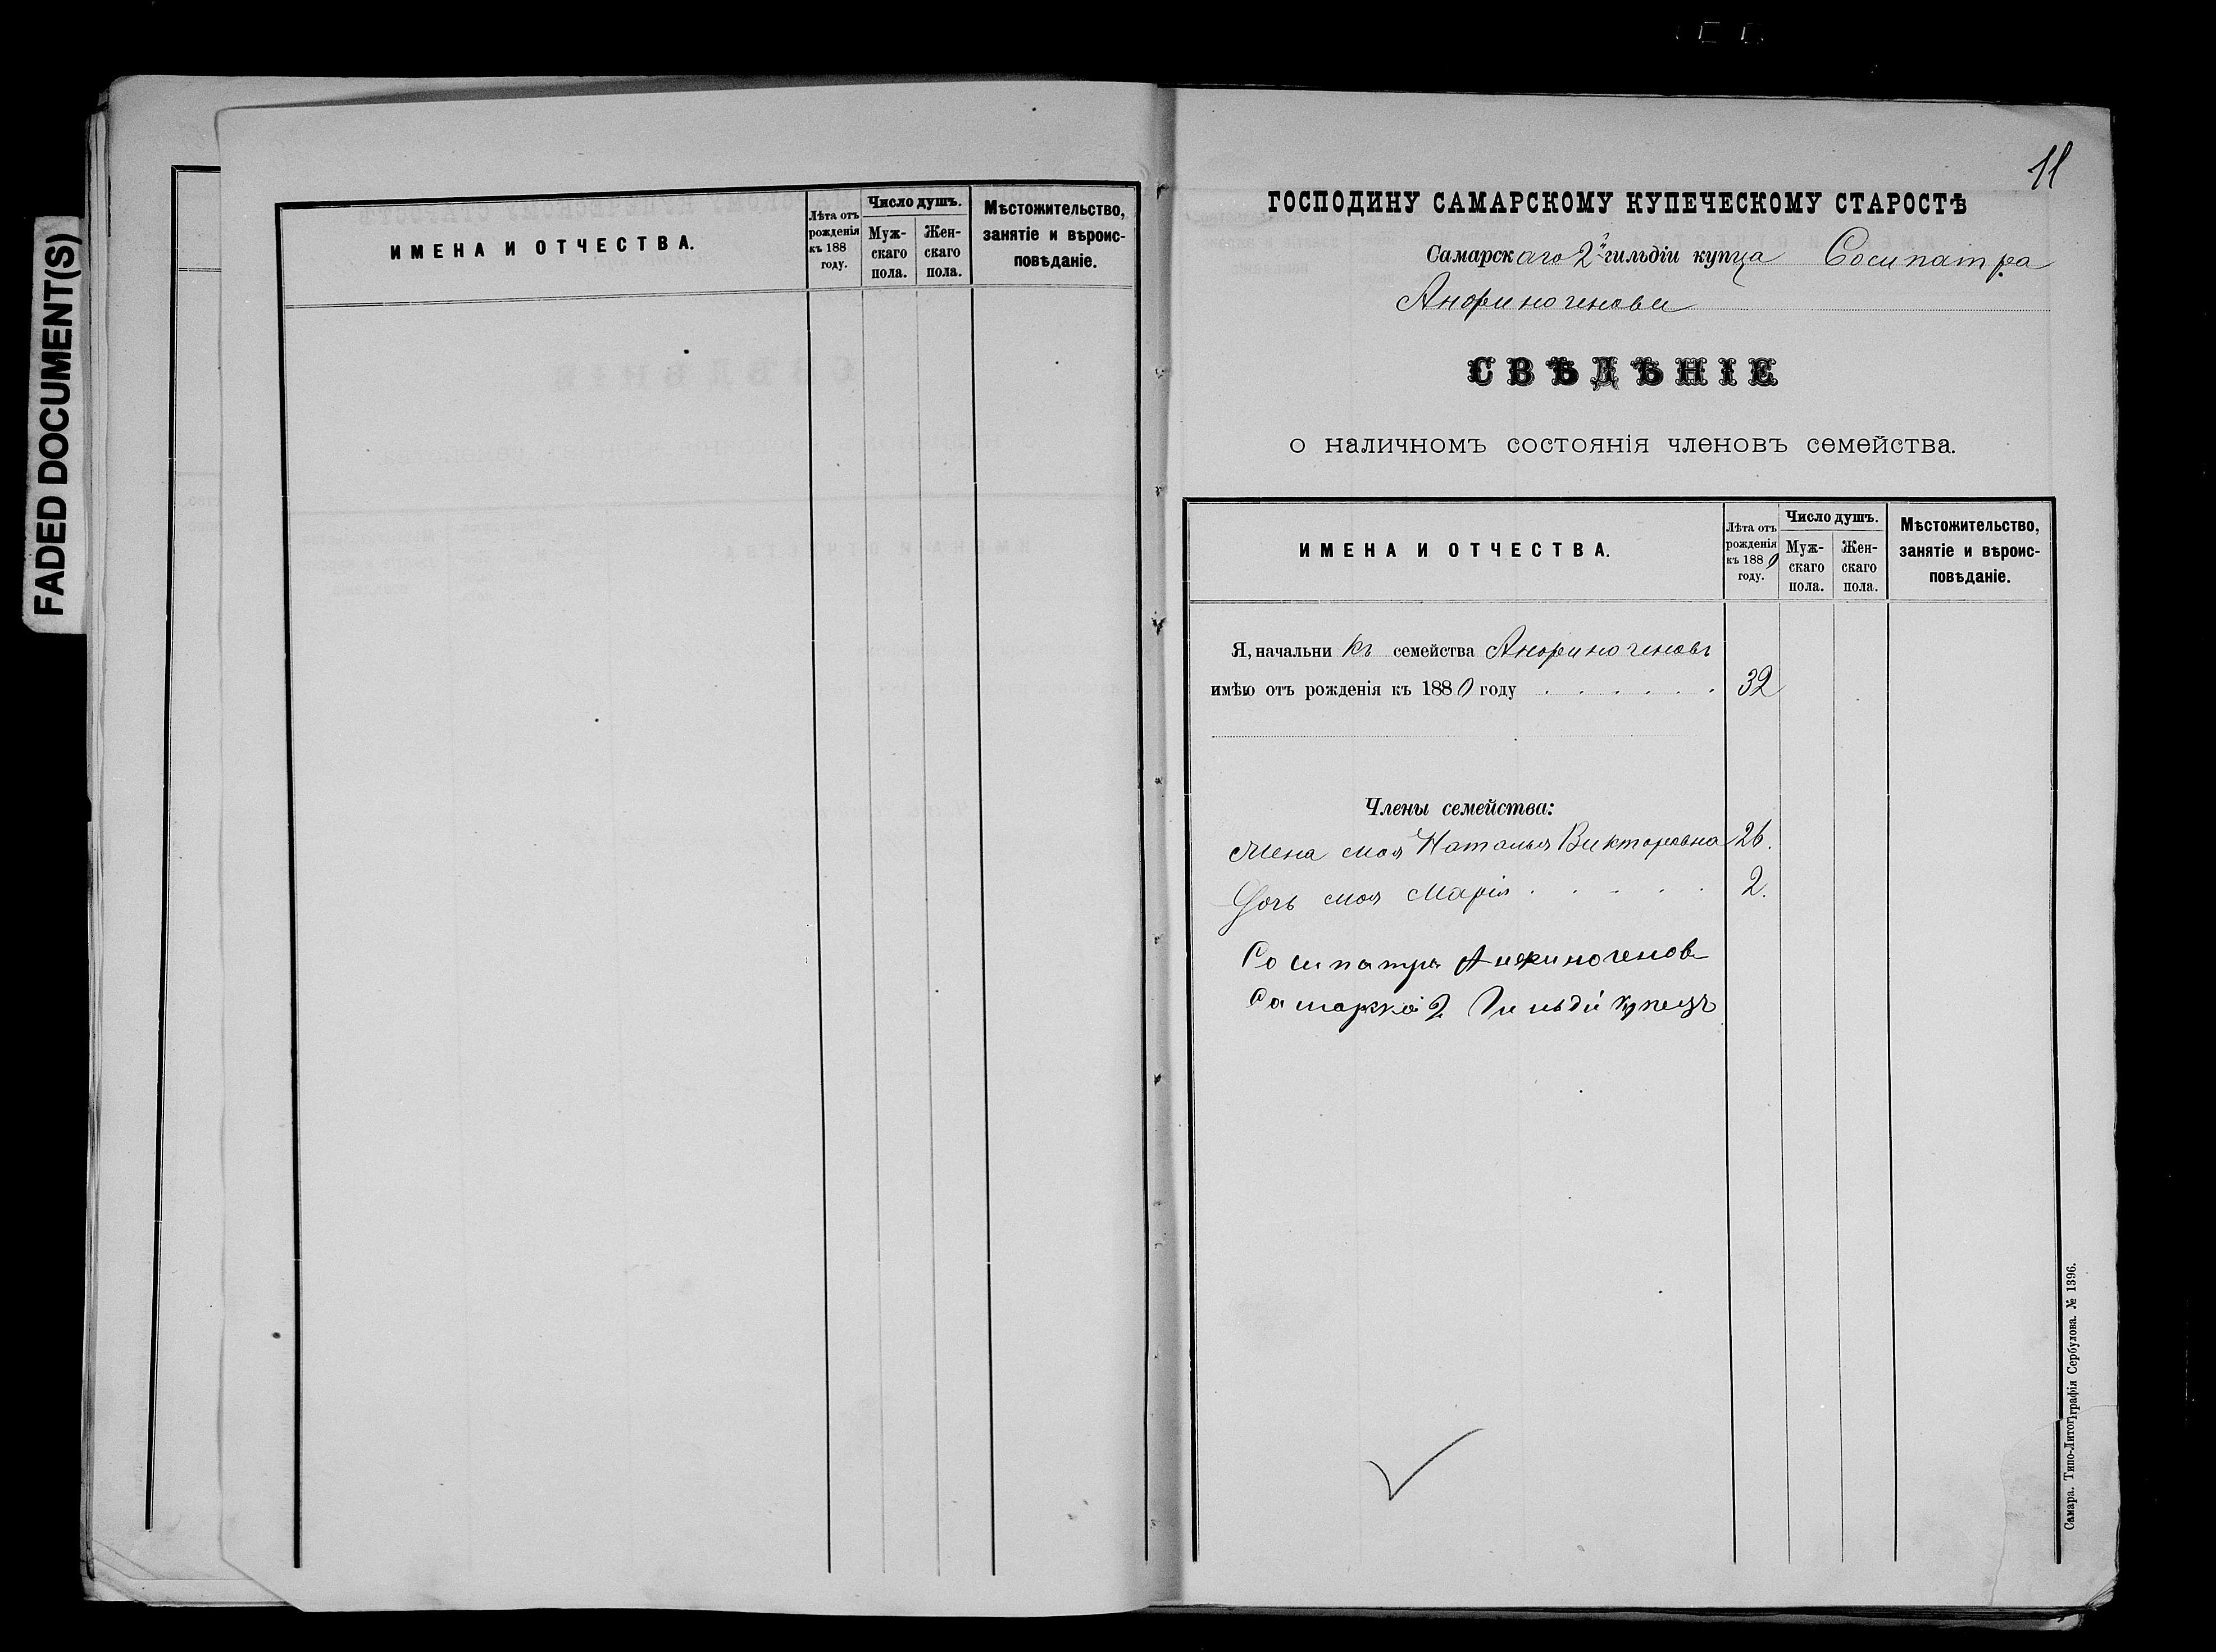 FADED DOCUMENT(S)
ИМЕНА И ОТЧЕСТВА.
Лѣта отъ рожденія къ 188 году.
Число душъ.
Мужскаго пола.
Женскаго пола.
Мѣстожительство, занятіе и вѣроисповѣданіе.
11
ГОСПОДИНУ САМАРСКОМУ КУПЕЧЕСКОМУ СТАРОСТѢ
Самарскаго 2й гильдіи купца Сосипатра
Анфиногенова
СВѢДѢНІЕ
о наличномъ состоянія членовъ семейства.
ИМЕНА И ОТЧЕСТВА.
Лѣта отъ рожденія къ 1880 году.
Число душъ.
Мужскаго пола.
Женскаго пола.
Мѣстожительство, занятіе и вѣроисповѣданіе.
Я, начальникъ семейства Анфиногеновъ
имѣю отъ рожденія къ 1880 году . . . . . . 32
Члены семейства:
Жена моя Наталья Викторовна 26.
Дочь моя Марія . . . . . 2.
Сосипатръ Анфиногеновъ
Самаркай 2 Гильдіи купецъ
Самара. Типо-Литографія Сербулова. № 1396.